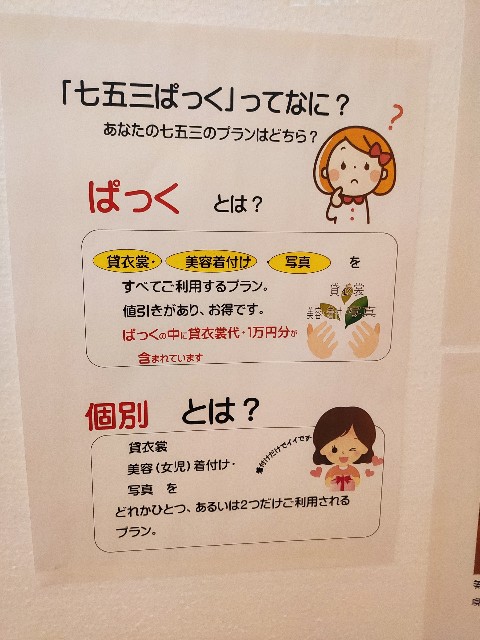 「七五三ぱっく」ってなに？
あなたの七五三のプランはどちら？
?
ぱっく とは？
貸衣裳・ 美容着付け 写真 を
すべてご利用するプラン。
値引きがあり、お得です。
ぱっくの中に貸衣裳代・1万円分が
含まれています
貸衣裳
美容着付 写真
個別 とは？
貸衣裳
美容（女児）着付け・
写真 を
どれかひとつ、あるいは2つだけご利用される
プラン。
着付けだけでイイです